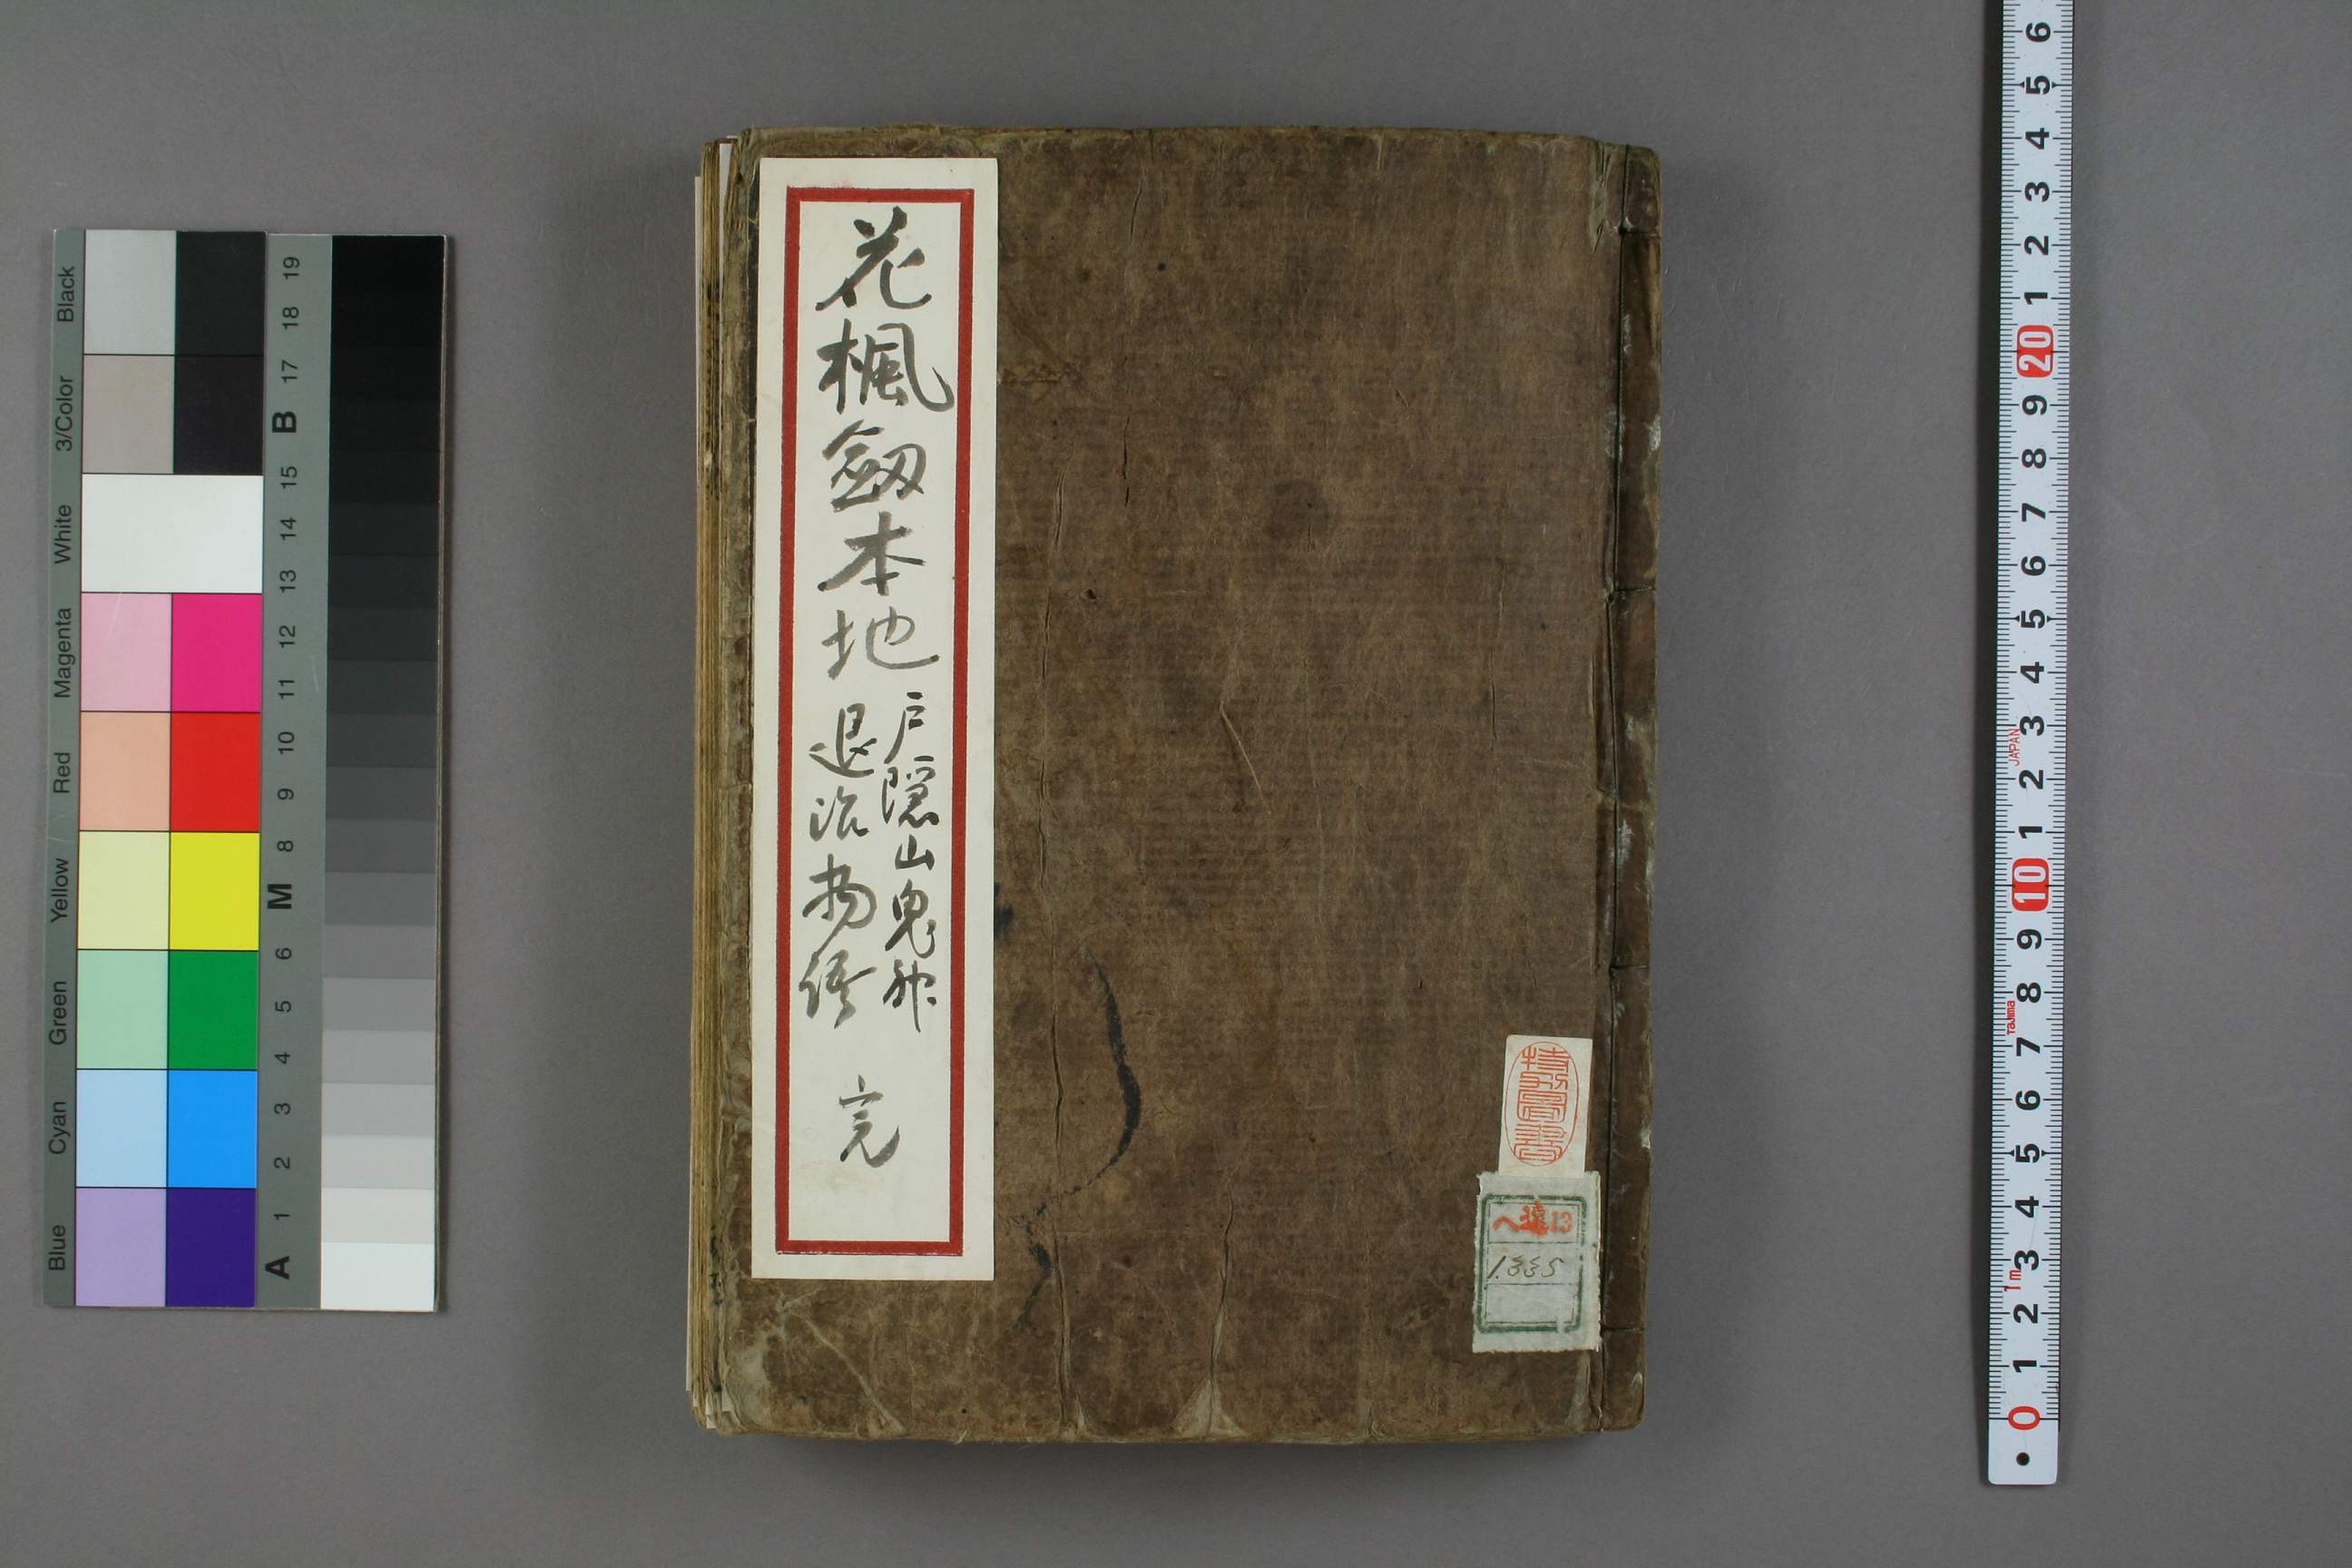 花楓劔本地
戸隠山鬼神
退治物語
完
ヘ遠13
1885
Black
3/Color
White
Magenta
Red
Yellow
Green
Cyan
Blue
19
18
17
B
15
14
13
12
11
10
9
8
M
6
5
4
3
2
1
A
6
5
4
3
2
1
20
9
8
7
6
5
4
3
JAPAN
2
1
10
9
8
Tajima
7
6
5
4
3
1m
2
1
0